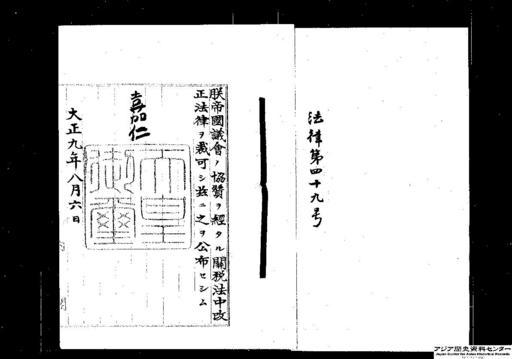 法律第四十九号
朕帝國議會ノ協賛ヲ經タル關税法中改
正法律ヲ裁可シ茲ニ之ヲ公布セシム
嘉仁
天皇
御璽
大正九年八月六日
アジア歴史資料センター
Japan Center for Asian Historical Records